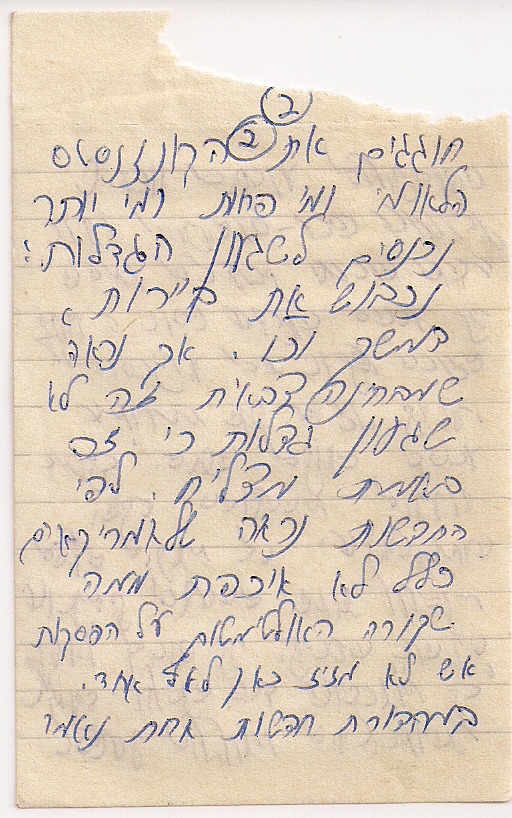 (2)
חוגגים את (2) הקונזנסוס
הלאומי ומי פחות ומי יותר
נכנסים לשגעון הגדלות:
נכבוש את ביירות,
דמשק וכו'. אך נראה
שמבחינה צבאית זה לא
שגעון גדלות כי זה
באמת מצליח. לפי
החדשות נראה שלאמריקאים
כלל לא איכפת ממה
שקורה האולטימטום על הפסקת
אש לא מזיז כאן לאף אחד.
במהדורת חדשות אחת נאמר